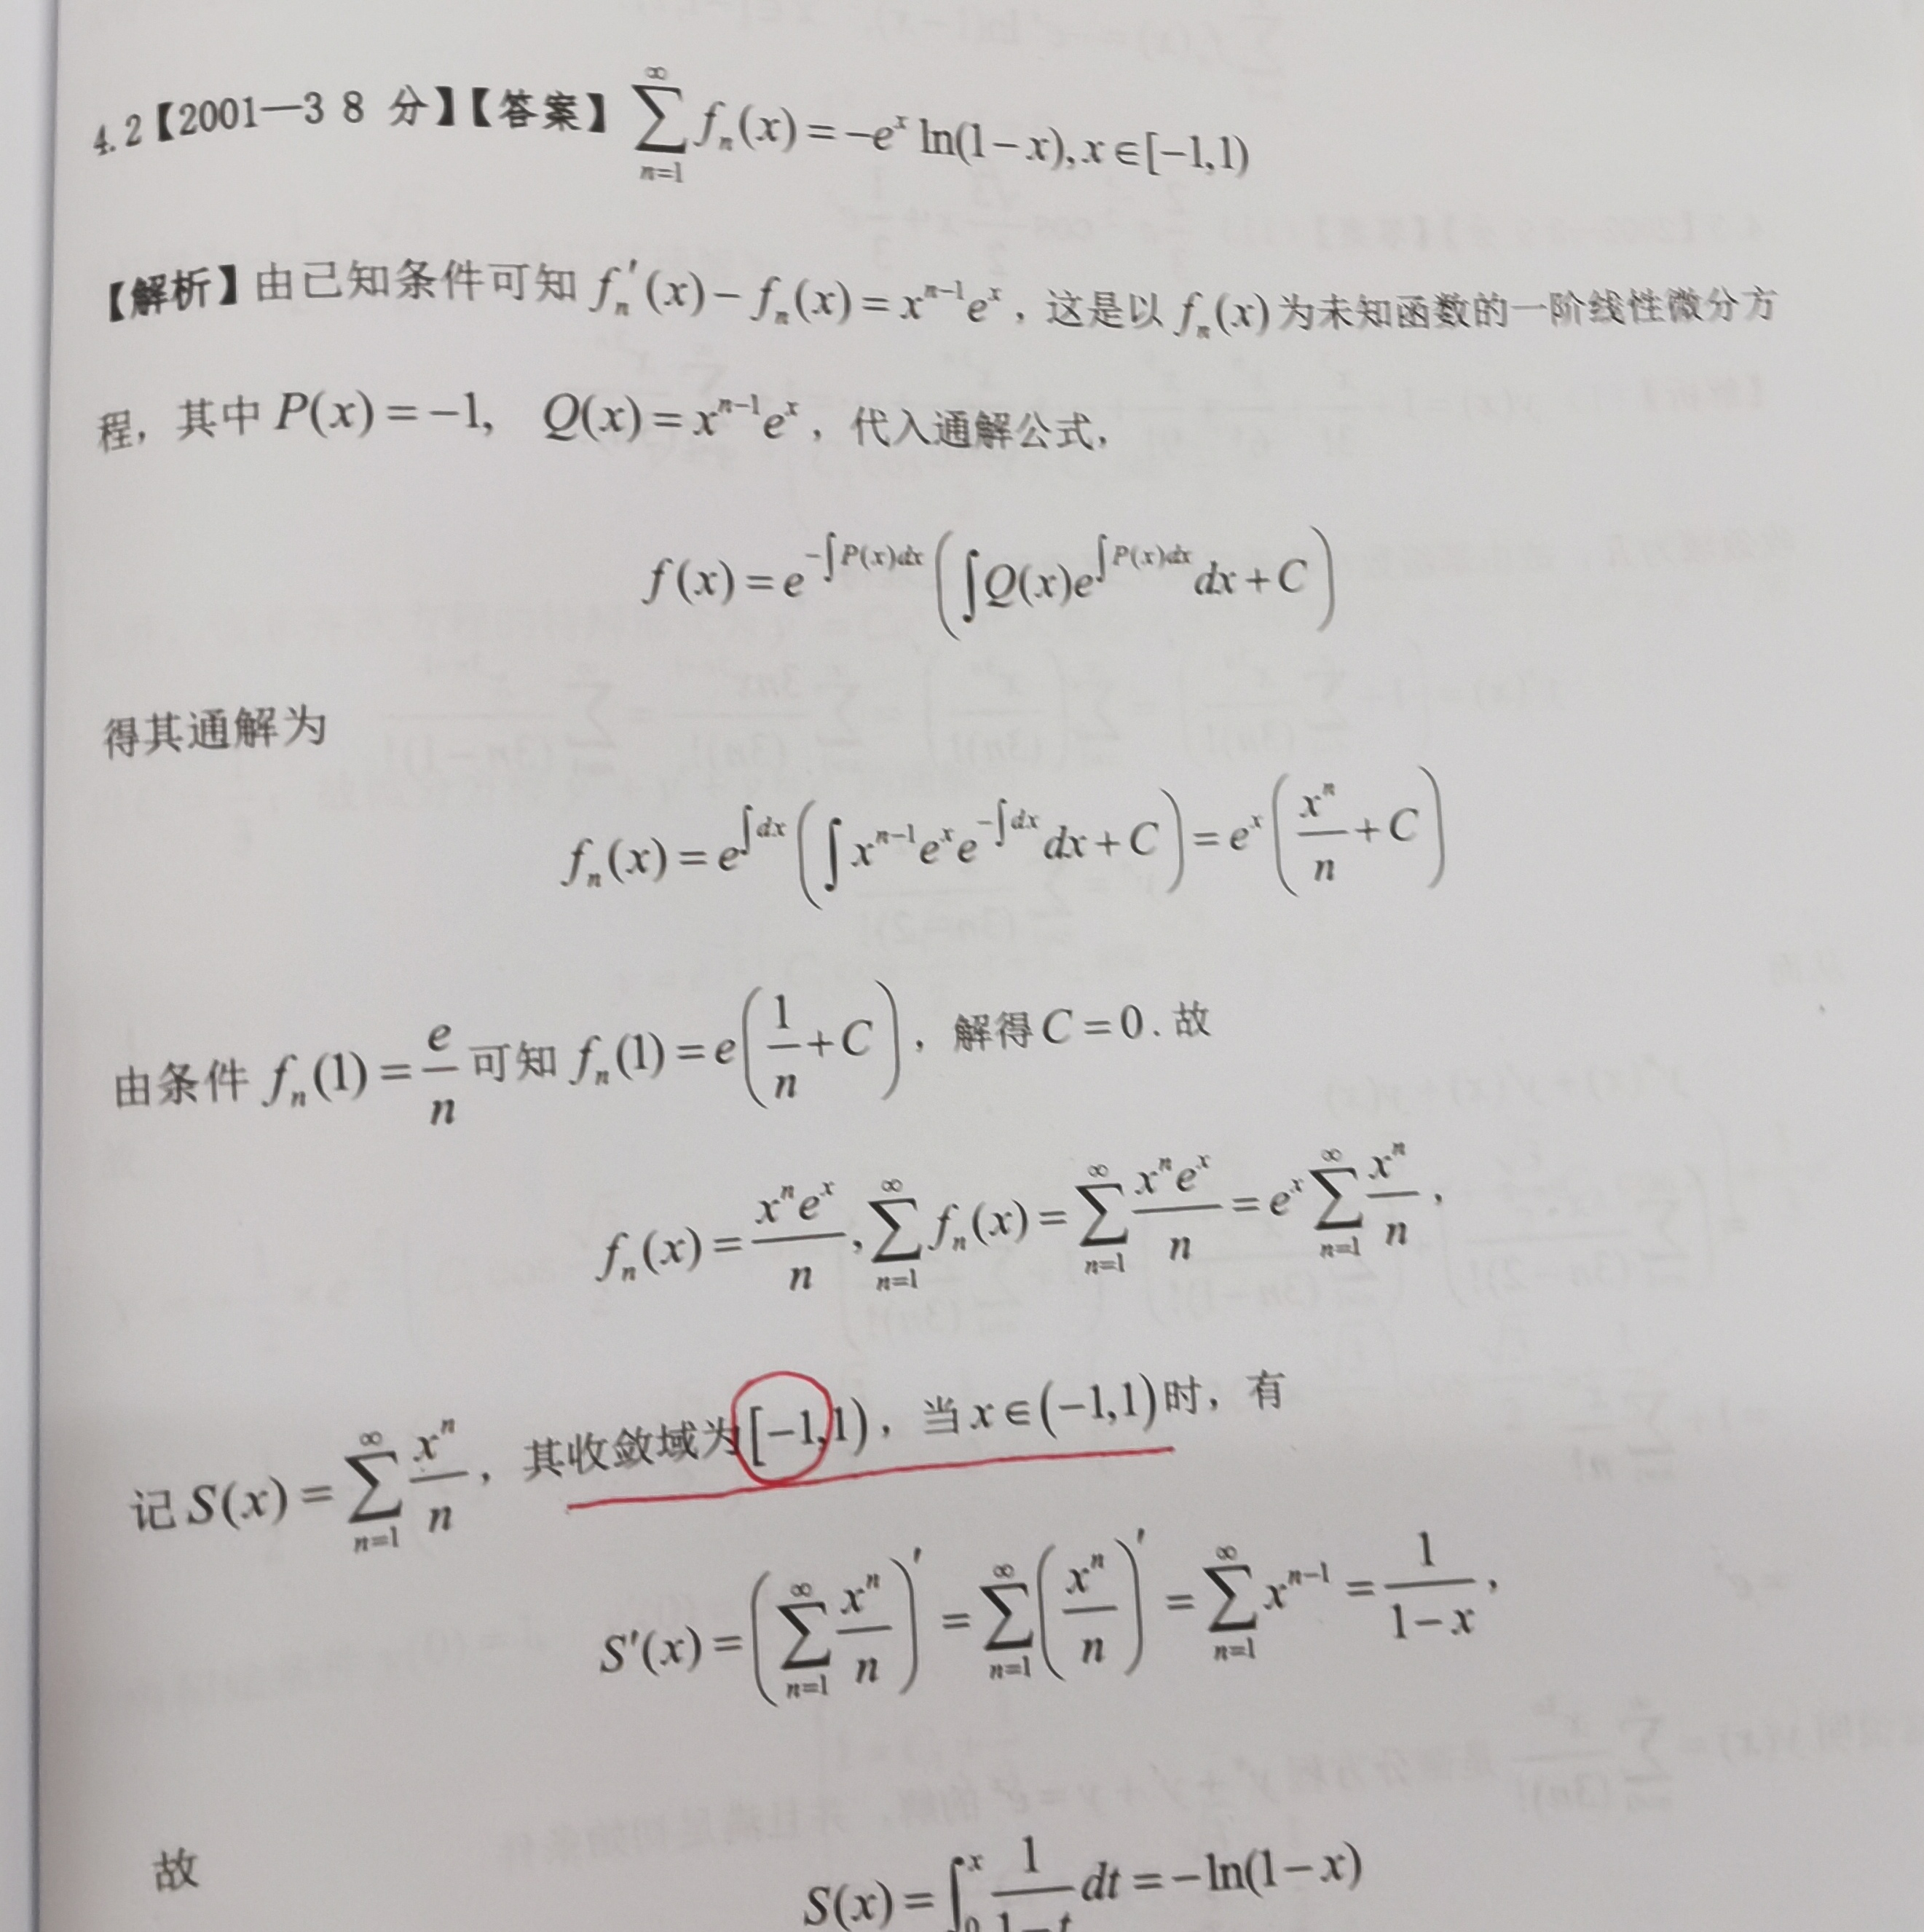 4.2【2001—3 8 分】【答案】 $\sum_{n=1}^{\infty} f_n(x) = -e^x \ln(1-x), x \in [-1,1)$
【解析】由已知条件可知 $f_n'(x) - f_n(x) = x^{n-1}e^x$，这是以 $f_n(x)$ 为未知函数的一阶线性微分方
程，其中 $P(x) = -1,\quad Q(x) = x^{n-1}e^x$，代入通解公式，
$f(x) = e^{-\int P(x)dx}\left(\int Q(x)e^{\int P(x)dx}dx + C\right)$
得其通解为
$f_n(x) = e^{\int dx}\left(\int x^{n-1}e^x e^{-\int dx}dx + C\right) = e^x\left(\frac{x^n}{n} + C\right)$
由条件 $f_n(1) = \frac{e}{n}$ 可知 $f_n(1) = e\left(\frac{1}{n} + C\right)$，解得 $C = 0$. 故
$f_n(x) = \frac{x^n e^x}{n}, \sum_{n=1}^{\infty} f_n(x) = \sum_{n=1}^{\infty} \frac{x^n e^x}{n} = e^x \sum_{n=1}^{\infty} \frac{x^n}{n}$，
记 $S(x) = \sum_{n=1}^{\infty} \frac{x^n}{n}$，其收敛域为 $[-1,1)$，当 $x \in (-1,1)$ 时，有
$S'(x) = \left(\sum_{n=1}^{\infty} \frac{x^n}{n}\right)' = \sum_{n=1}^{\infty} \left(\frac{x^n}{n}\right)' = \sum_{n=1}^{\infty} x^{n-1} = \frac{1}{1-x}$，
故
$S(x) = \int_0^x \frac{1}{1-t}dt = -\ln(1-x)$